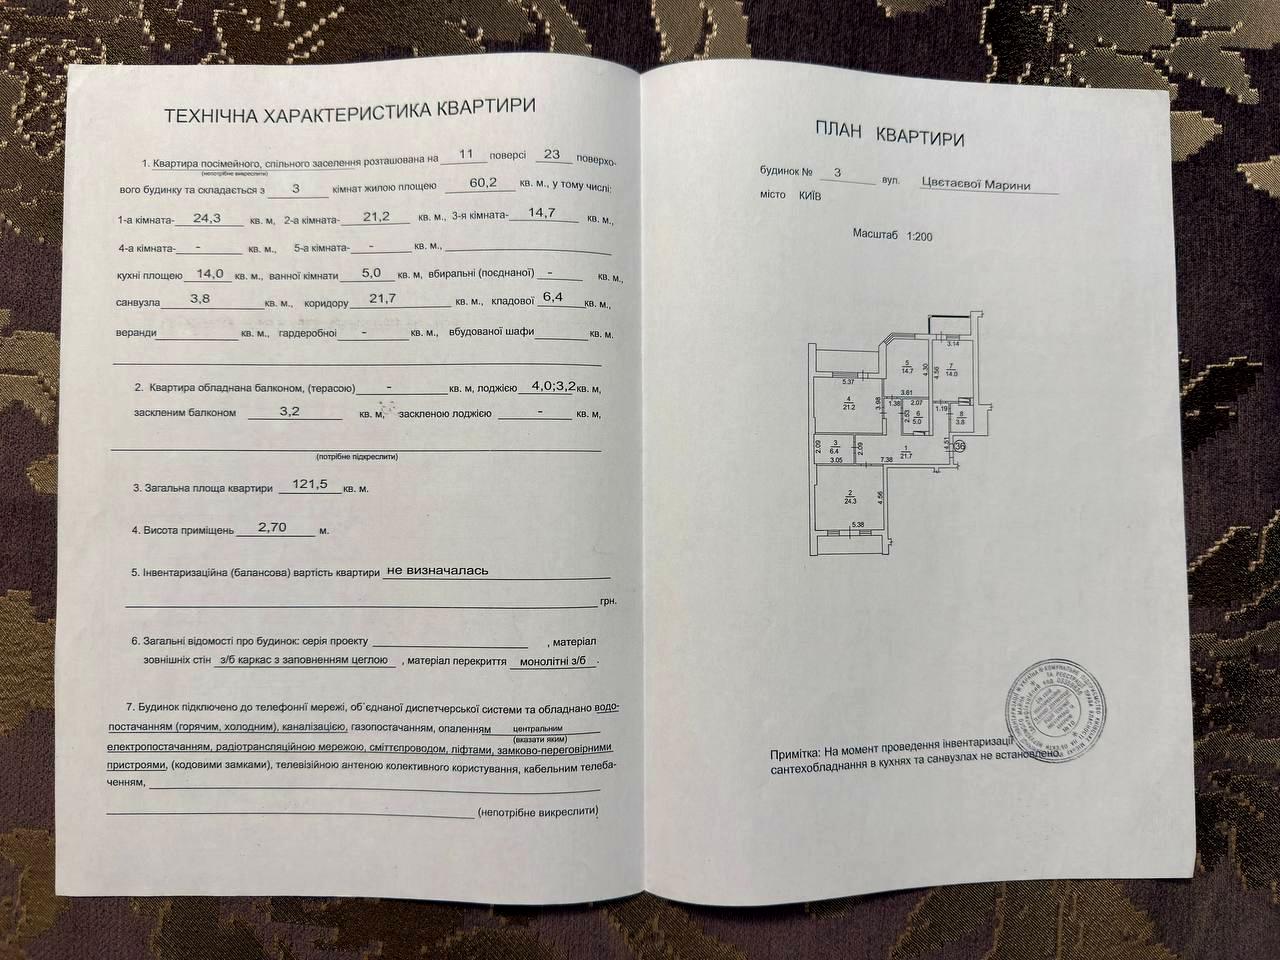 ТЕХНІЧНА ХАРАКТЕРИСТИКА КВАРТИРИ
1. Квартира посімейного, спільного заселення розташована на 11 поверсі 23 поверхо-
(непотрібне викреслити)
вого будинку та складається з 3 кімнат жилою площею 60,2 кв. м., у тому числі;
1-а кімната- 24,3 кв. м, 2-а кімната- 21,2 кв. м., 3-я кімната- 14,7 кв. м.,
4-а кімната- - кв. м., 5-а кімната- - кв. м.,
кухні площею 14,0 кв. м., ванної кімнати 5,0 кв. м, вбиральні (поєднаної) - кв. м.,
санвузла 3,8 кв. м., коридору 21,7 кв. м., кладової 6,4 кв. м.,
веранди кв. м., гардеробної - кв. м., вбудованої шафи кв. м.
2. Квартира обладнана балконом, (терасою) - кв. м, лоджією 4,0;3,2 кв. м,
заскленим балконом 3,2 кв. м, заскленою лоджією - кв. м,
(потрібне підкреслити)
3. Загальна площа квартири 121,5 кв. м.
4. Висота приміщень 2,70 м.
5. Інвентаризаційна (балансова) вартість квартири не визначалась
грн.
6. Загальні відомості про будинок: серія проекту , матеріал
зовнішніх стін з/б каркас з заповненням цеглою , матеріал перекриття монолітні з/б .
7. Будинок підключено до телефонні мережі, об`єднаної диспетчерської системи та обладнано водо-
постачанням (горячим, холодним), каналізацією, газопостачанням, опаленням центральним
(вказати яким)
електропостачанням, радіотрансляційною мережою, сміттєпроводом, ліфтами, замково-переговірними
пристроями, (кодовими замками), телевізійною антеною колективного користування, кабельним телеба-
ченням,
(непотрібне викреслити)
ПЛАН КВАРТИРИ
будинок № 3 вул. Цвєтаєвої Марини
місто КИЇВ
Масштаб 1:200
3.14
5
14.7
4.30
4.56
7
14.0
5.37
3.61
4
21.2
3.98
1.38
2.07
1.19
2.53
6
5.0
8
3.8
2.09
3
6.4
2.09
4.51
36
1
21.7
3.05
7.38
2
24.3
4.56
5.38
Примітка: На момент проведення інвентаризації
сантехобладнання в кухнях та санвузлах не встановлено.